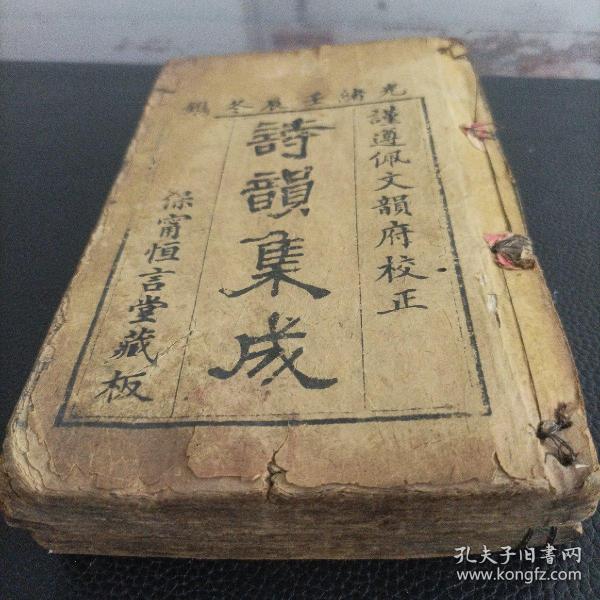 光緒壬辰冬鐫
謹遵佩文韻府校正
詩韻集成
保甯恒言堂藏板
孔夫子旧书网
www.kongfz.com